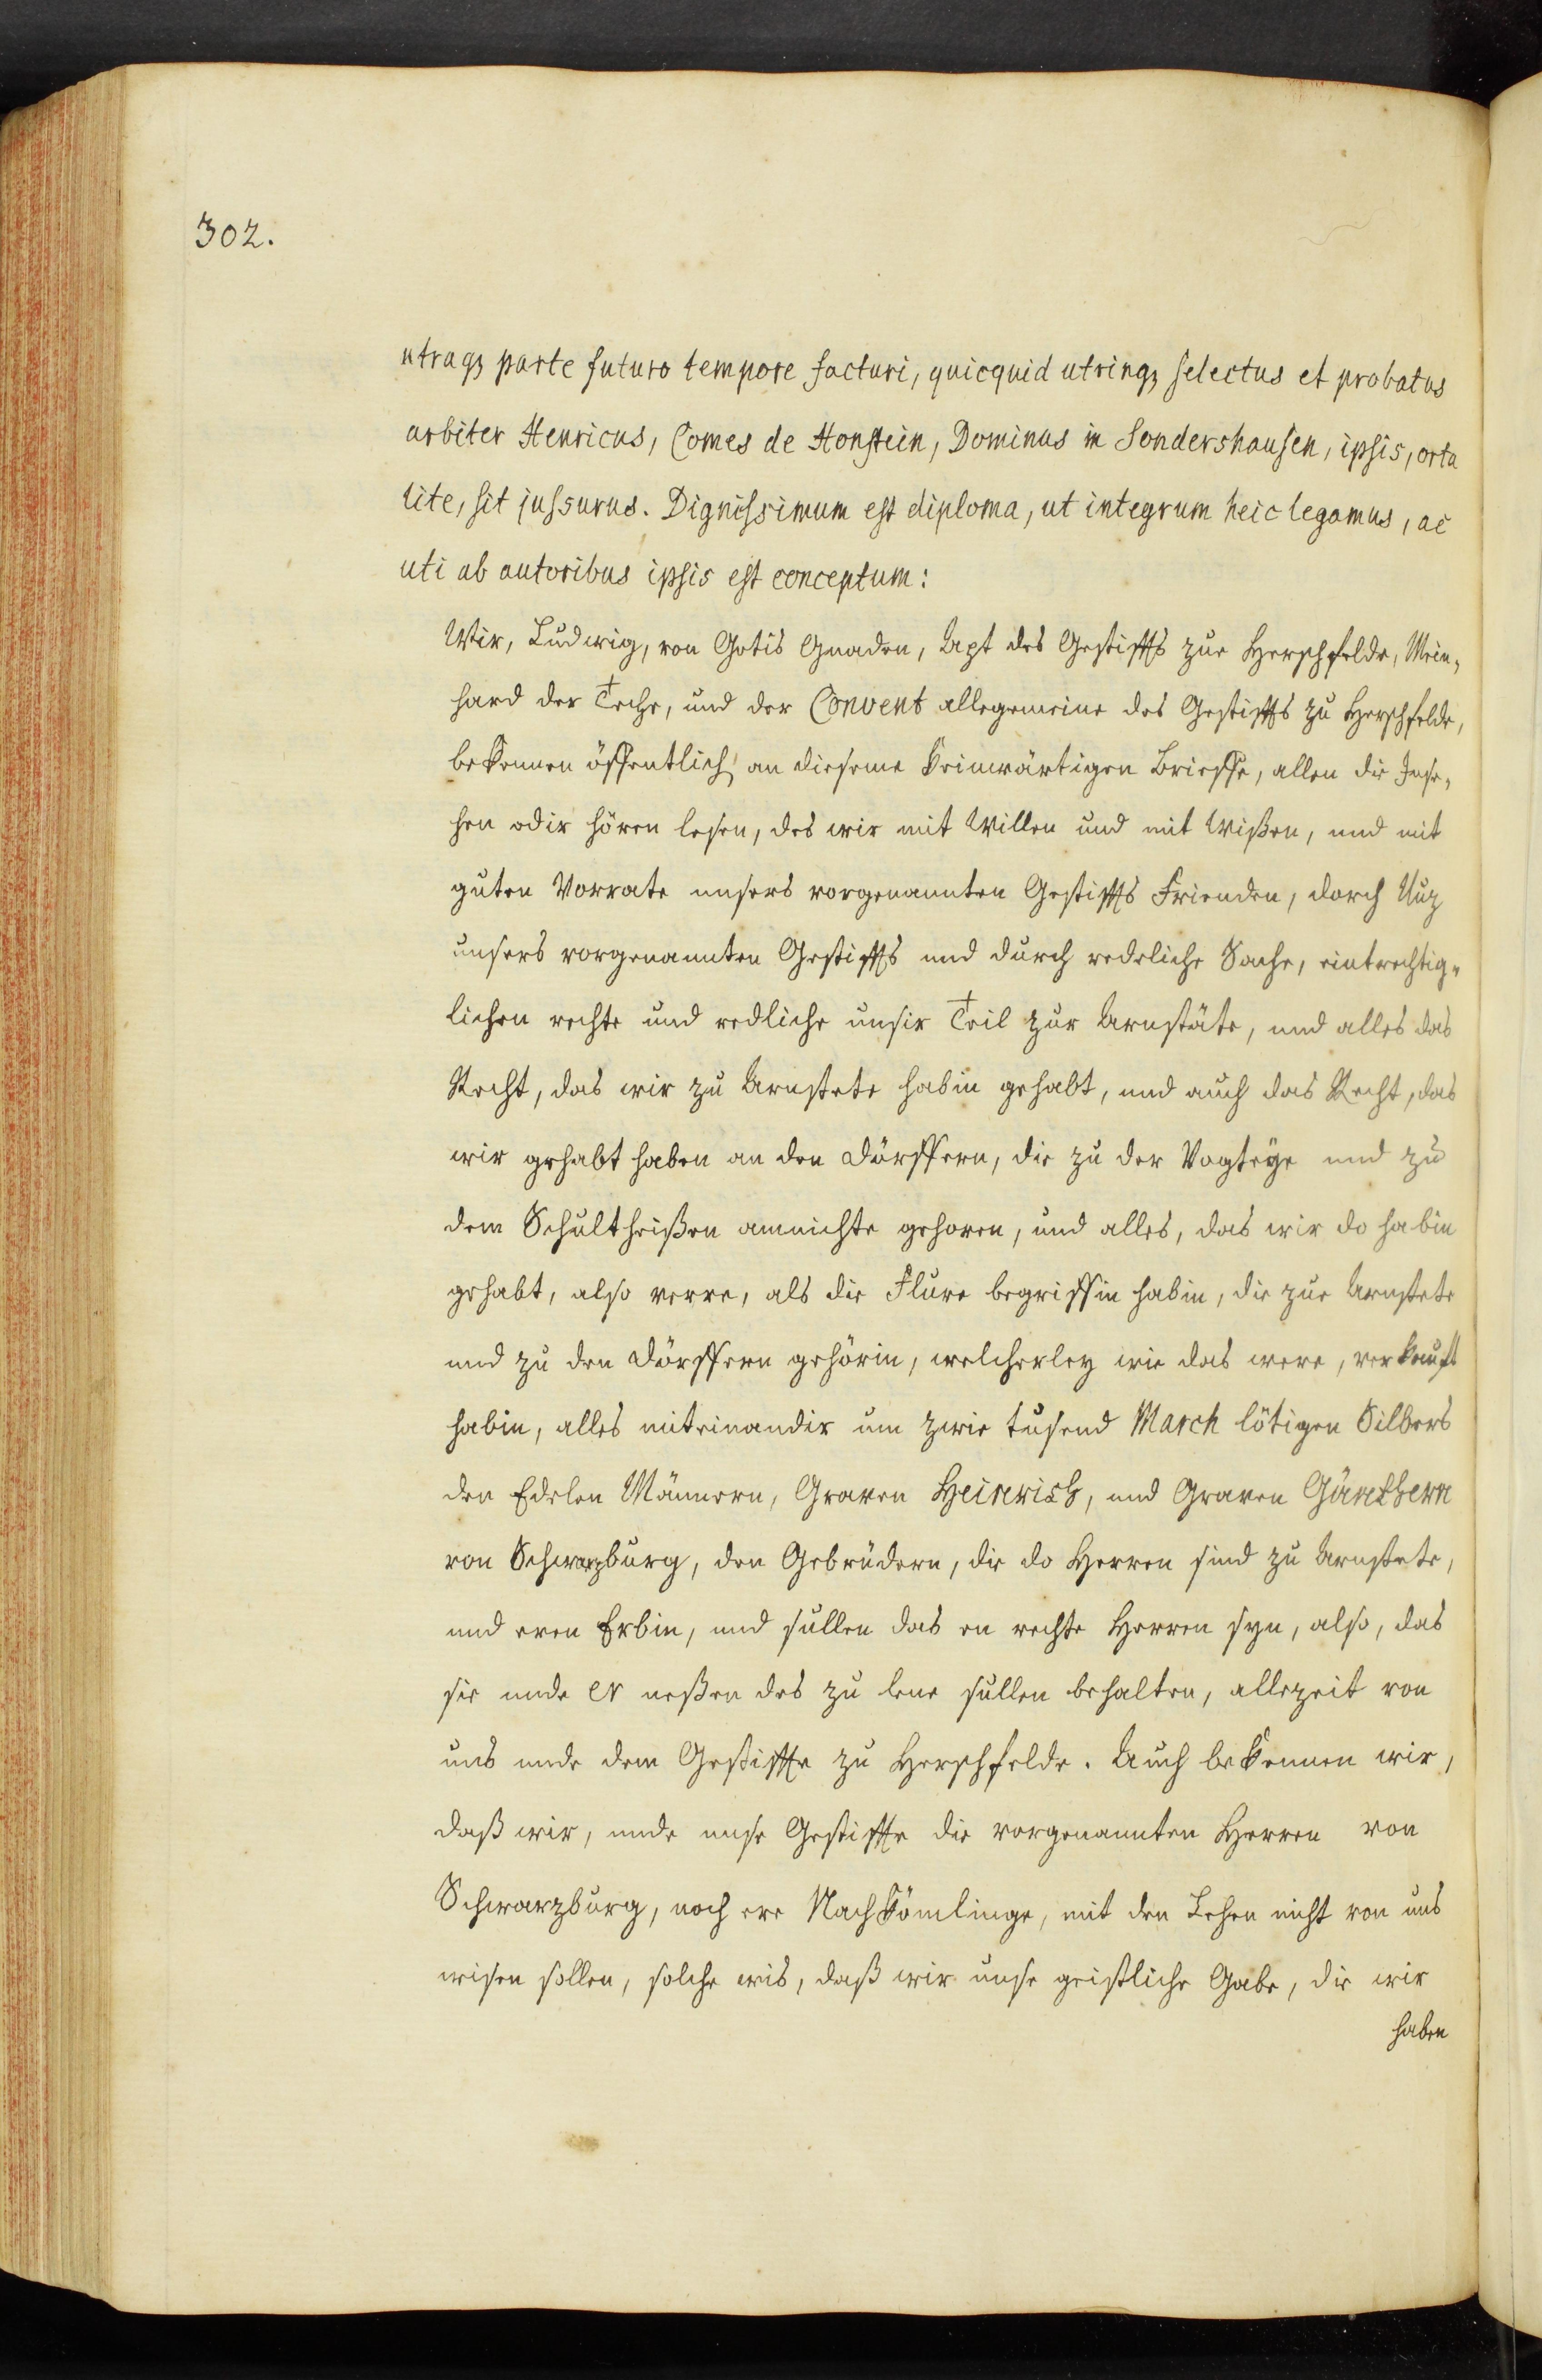 302.
utraq₃ parte futuro tempore facturi, quicquid utrinq₃ selectus et probatus
arbiter Henricus, Comes de Honstein, Dominus in Sondershausen, ipsis, orta
lite, sit jussurus. Dignissimum est diploma, ut integrum heic legamus, ac
uti ab autoribus ipsis est conceptum:
Wir, Ludwig, von Gotis Gnaden, Apt des Gestiffts zue Herschfelde, Mein„
hard der Teche, und der Convent allegemeine des Gestiffts zu Herschfelde,
bekennen öffentlich, an dieseme keinwärtigen Brieffe, allen die Jnse„
hen odir hören lesen, des wir mit Willen und mit Wißen, und mit
guten Vorrate unsers vorgenannten Gestiffts Frienden, dorch Nuz
unsers vorgenannten Gestiffts und durch redeliche Sache, eintrechtig„
lichen rechte und redliche unsir Teil zur Arnstäte, und alles das
Recht, das wir zu Arnstete habin gehabt, und auch das Recht, das
wir gehabt haben an den Dörffern, die zu der Vogteÿe und zu
dem Schultheißen ammichte gehoren, und alles, das wir do habin
gehabt, also verre, als die Flure begriffin habin, die zue Arnstete
und zu den Dörffern gehörin, welcherley wie das were, verkauft
habin, alles miteinandir um zwie tusend March lötigen Silbers
den Edelen Männern, Graven Heinrich, und Graven Günthern
von Schwarzburg, den Gebrüdern, die do Herren sind zu Arnstete,
und eren Erbin, und sullen das en rechte Herren syn, also, das
sie unde er neßen des zu lene sullen behalten, allezeit von
uns unde dem Gestiffte zu Herschfelde. Auch bekennen wir,
daß wir, unde unse Gestiffte die vorgenannten Herren von
Schwarzburg, noch ere Nachkömlinge, mit den Lehen nicht von uns
wisen sollen, solche wis, daß wir unse geistliche Gabe, die wir
haben